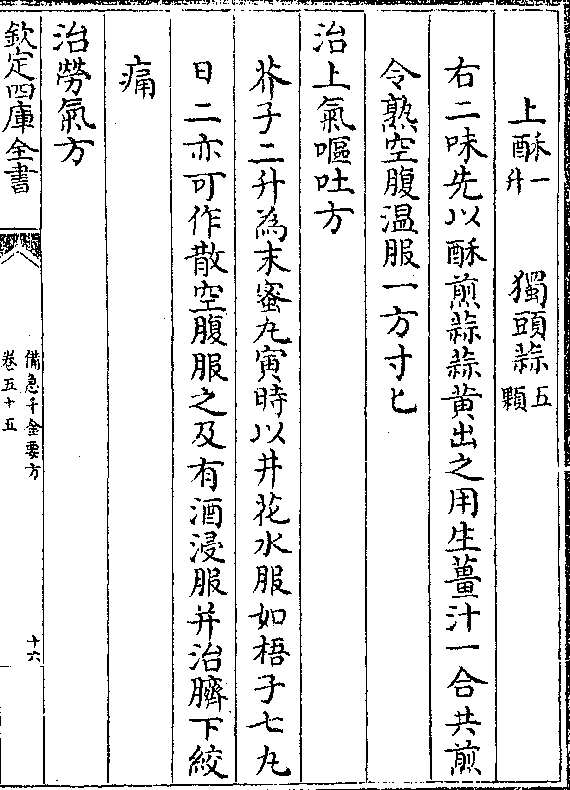 上酥一升　獨頭蒜五顆
右二味先以酥煎蒜蒜黄出之用生薑汁一合共煎
令熟空腹温服一方寸匕
治上氣嘔吐方
芥子二升為末蜜丸寅時以井花水服如梧子七丸
日二亦可作散空腹服之及有酒浸服并治臍下絞
痛
治勞氣方
欽定四庫全書
備急千金要方
卷五十五
十六